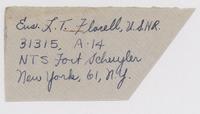 Ens. L. T. Flarell, U.S.N.R.
31315, A-14
NTS Fort Schuyler
New York, 61, N.Y.